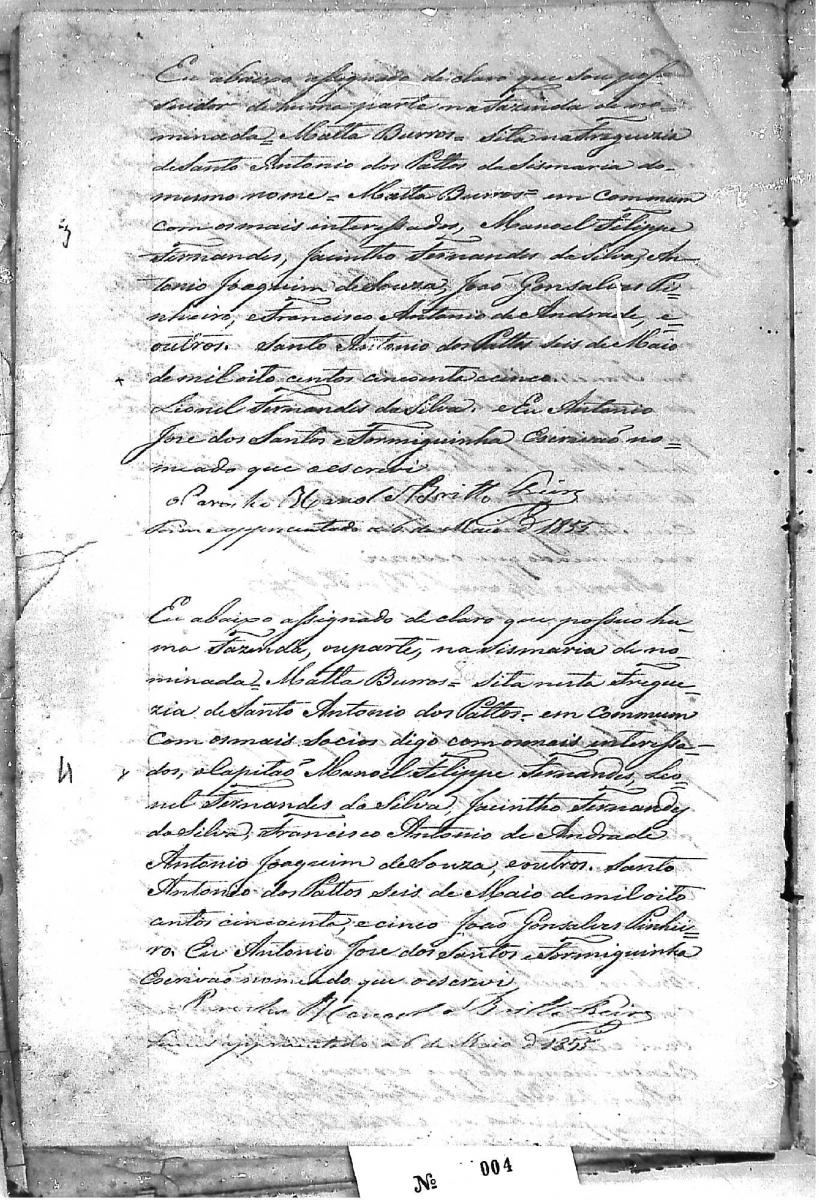 Eu abaixo assignado de claro que sou pos
suidor de huma parte na Fazenda de no-
minada = Matta Burros = Sita na Freguezia
de Santo Antonio dos Pattos da Sismaria do
mesmo nome = Matta Burros = em Commum
com os mais interessados, Manoel Filippe
Fernandes, Jacintho Fernandes da Silva, An-
tonio Joaquim de Souza, João Gonsalves Pi-
nheiro, e Francisco Antonio de Andrade, e
outros. Santo Antonio dos Pattos seis de Maio
de mil oito centos cincoenta e cinco.
Lionel Fernandes da Silva. e Eu Antonio
Jose dos Santos e Formiguinha Escrivaõ no-
meado que o escrevi
3
o Parocho Manoel Britto
appresentado a 6 de Maio d 1855
Eu abaixo assignado de claro que possuo hu-
ma Fazenda, ou parte, na Sismaria de no-
minada = Matta Burros = Sita nesta Fregue-
zia de Santo Antonio dos Pattos = em Commum
Com os mais Socios digo com os mais interessa-
dos, o Capitaõ Manoel Filippe Fernandes, Leo-
nel Fernandes da Silva, Jacintho Fernandes
da Silva, Francisco Antonio de Andrade
Antonio Joaquim de Souza, e outros. Santo
Antonio dos Pattos Seis de Maio de mil oito
centos cincoenta, e cinco João Gonsalves Pinhei-
ro. Eu Antonio Jose dos Santos e Formiguinha
Escrivaõ nomeado que o escrevi
4
Parocho Manoel Britto
appresentado a 6 de Maio d 1855
Nº 004